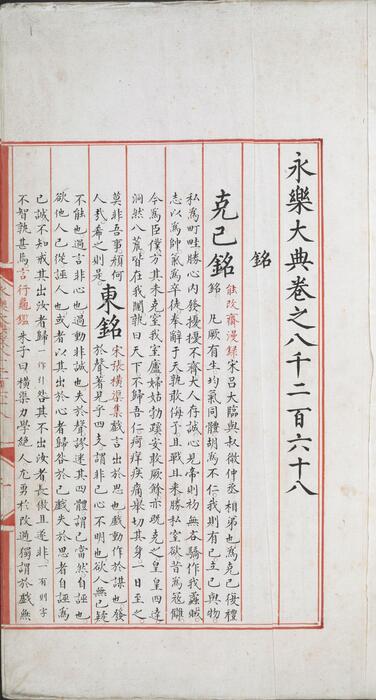 永樂大典卷之八千二百六十八
銘
克己銘
能改齋漫錄宋呂大臨與叔微仲丞相弟也為克己復禮
銘 凡厥有生均氣同體胡為不仁我則有己立己與物
私為町畦勝心內發擾擾不齊大人存誠心見帝則初無吝驕作我蟊賊
志以為帥氣為卒徒奉辭于天孰敢侮予且戰且徠勝私窒欲昔為寇讎
今為臣僕方其未克窘我室廬婦姑勃蹊安取厥餘亦既克之皇皇四達
洞然八荒皆在我闥孰曰天下不歸吾仁痒疴疾痛舉切其身一日至之
莫非吾事顏何
人哉希之則是
東銘
宋張橫渠集戲言出於思也戲動作於謀也發
於聲著見乎四支謂非己心不明也欲人無己疑
不能也過言非心也過動非誠也失於聲謬迷其四體謂己當然自誣也
欲他人己從誣人也或者以其出於心者歸咎於己戲失於思者自誣為
己誠不知戒其出汝者歸一作引咎其不出汝者長傲且遂非一有則字
不智孰甚焉言行龜鑑朱子曰橫渠力學絕人尤勇於改過獨謂於戲無